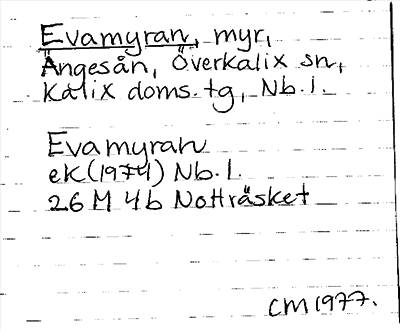 Evamyran, myr,
Ängesån, Överkalix sn,
Kalix doms. tg, Nb. l.
Evamyran
eK(1974) Nb. l.
26 M 4b Notträsket
CM 1977.